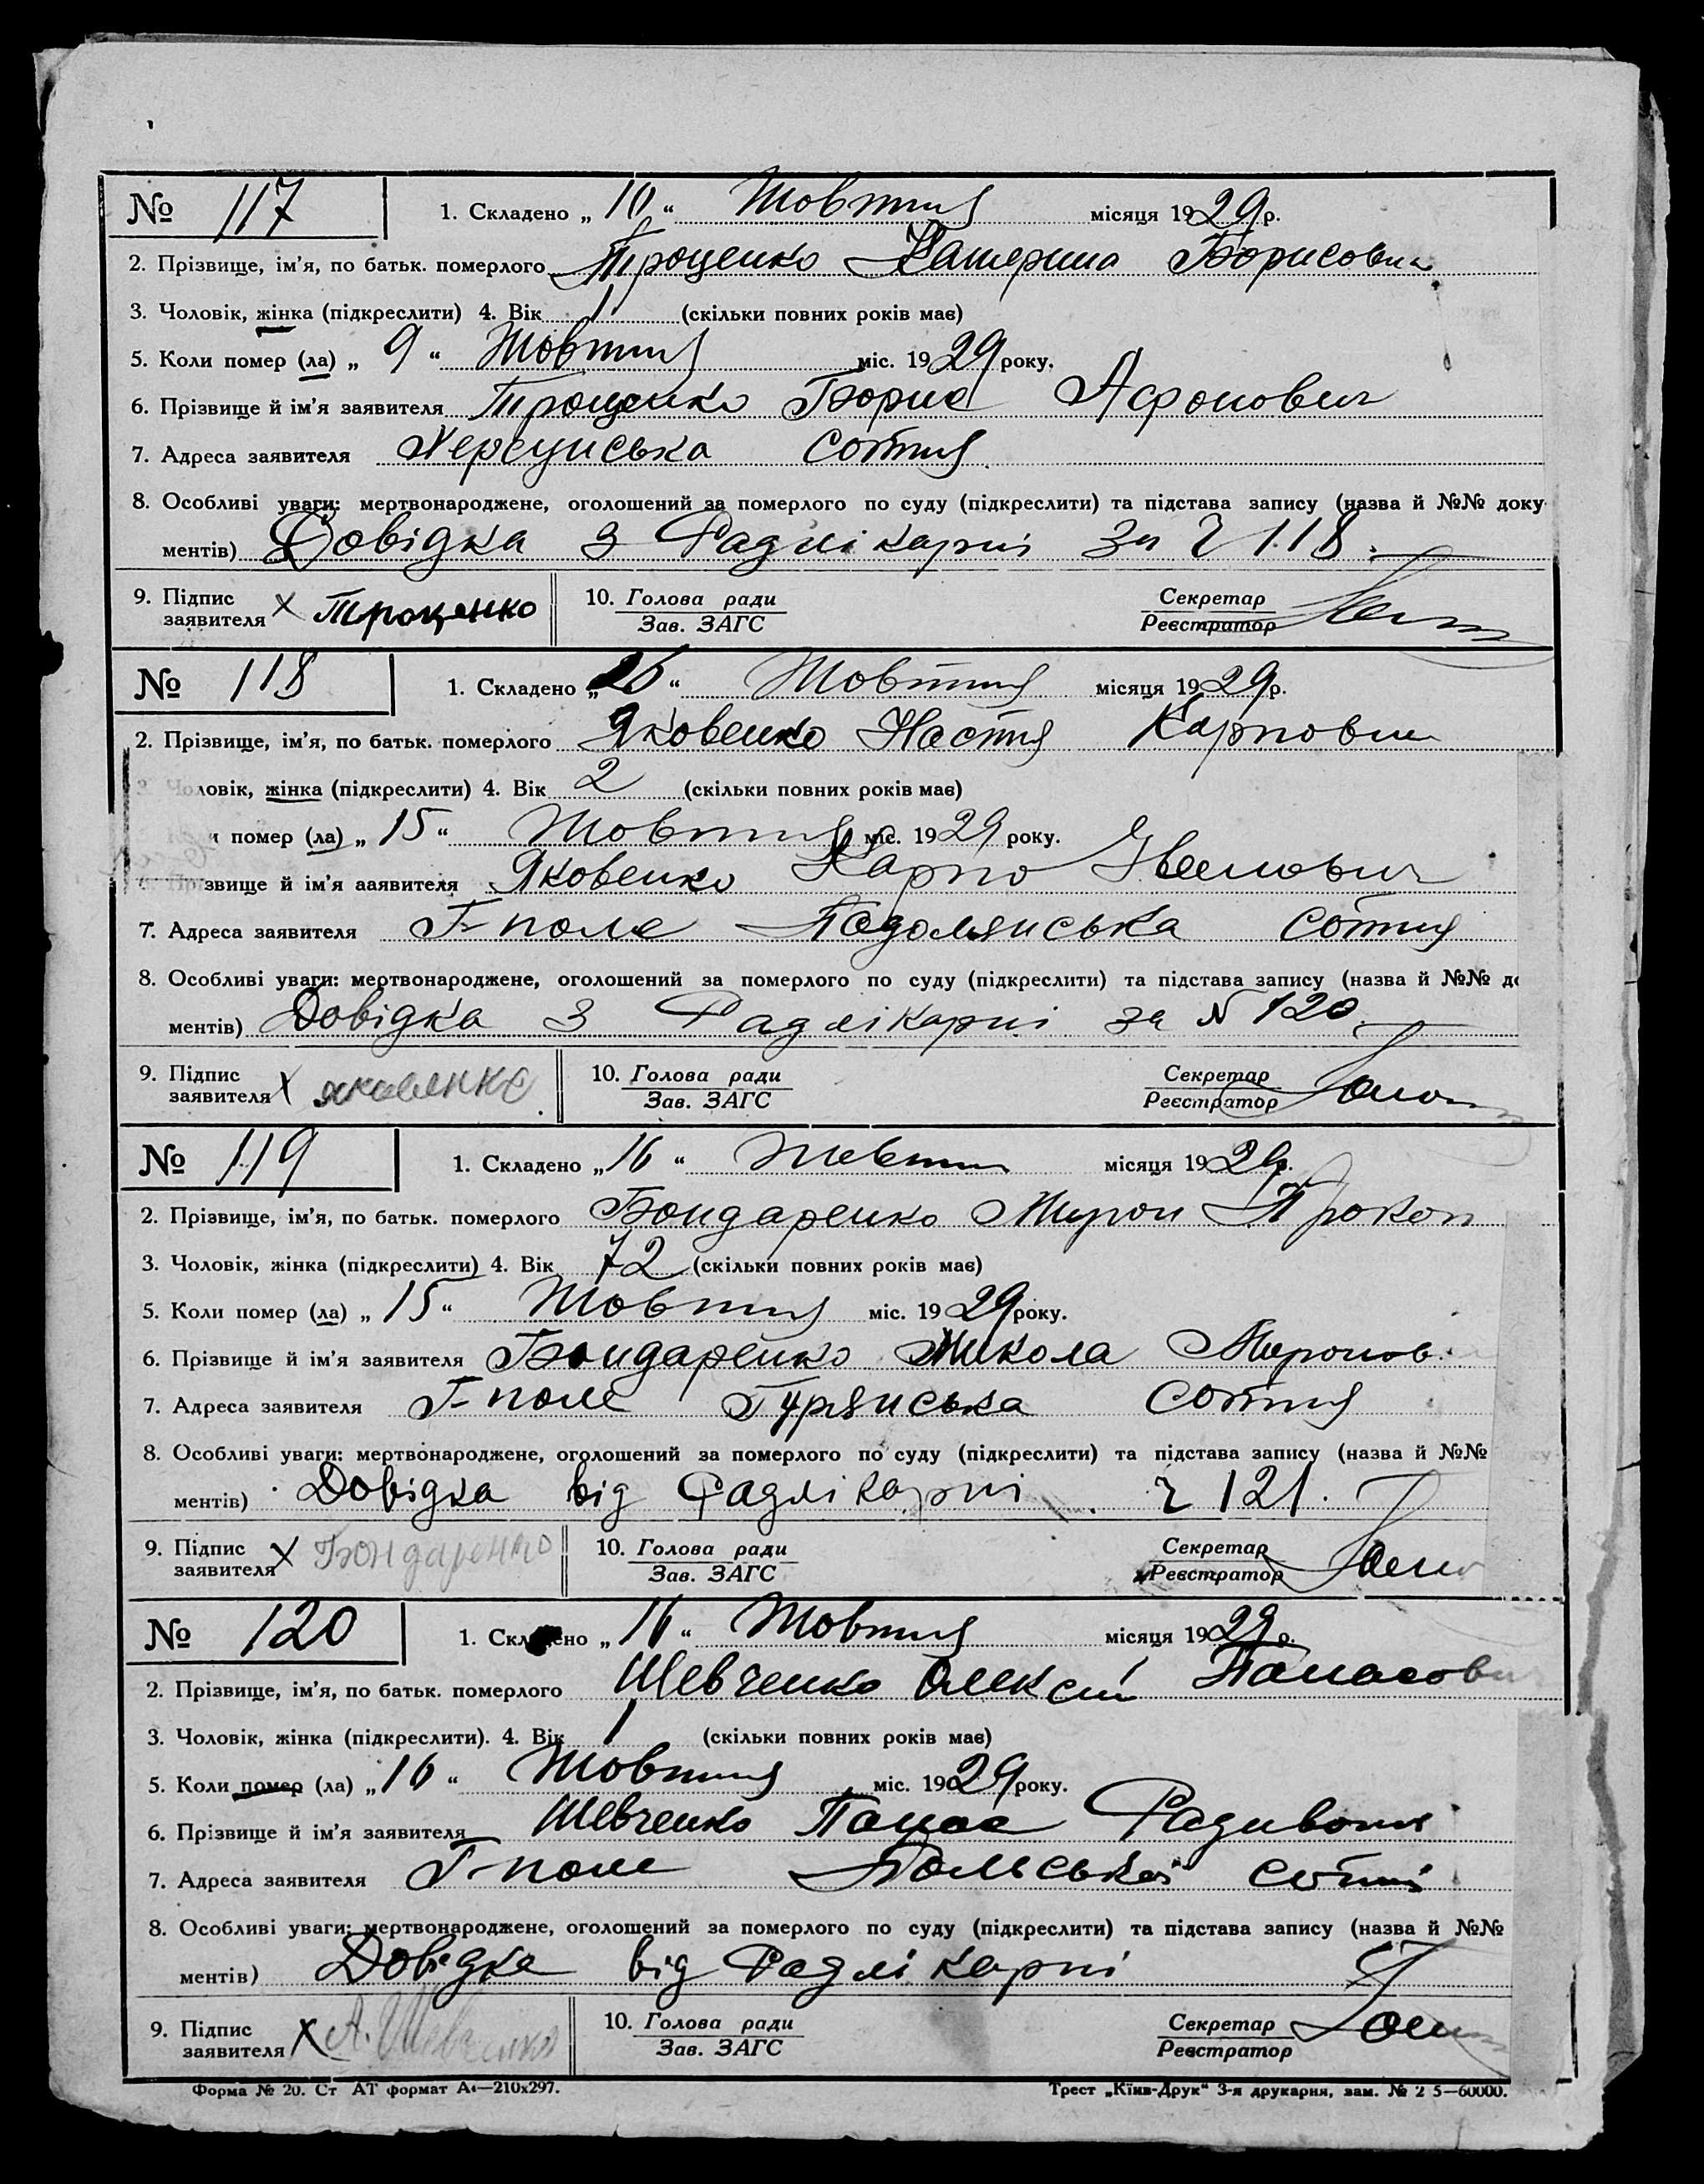 № 117 1. Складено „ 10 “ Жовтня місяця 1929 р.
2. Прізвище, ім’я, по батьк. померлого Троценко Катерина Борисовна
3. Чоловік, жінка (підкреслити) 4. Вік 1 (скільки повних років має)
5. Коли помер (ла) „ 9 “ Жовтня міс. 1929 року.
6. Прізвище й ім’я заявителя Троценко Борис Афонович
7. Адреса заявителя сотня
8. Особливі уваги: мертвонароджене, оголошений за померлого по суду (підкреслити) та підстава запису (назва й №№ доку-
ментів) Довідка з Радлікарні за ч 118.
9. Підпис заявителя х Троценко 10. Голова ради Зав. ЗАГС Секретар Реєстратор
№ 118 1. Складено „ “ Жовтня місяця 1929 р.
2. Прізвище, ім’я, по батьк. померлого Яковенко Настя Карповна
ловік, жінка (підкреслити) 4. Вік 2 (скільки повних років має)
и помер (ла) „ 15 “ Жовтня міс. 1929 року.
6. Прізвище й ім’я заявителя Яковенко Карпо Іванович
7. Адреса заявителя Г-поле Подолянська сотня
8. Особливі уваги: мертвонароджене, оголошений за померлого по суду (підкреслити) та підстава запису (назва й №№ до
ментів) Довідка з Радлікарні за № 120
9. Підпис заявителя х яковенко 10. Голова ради Зав. ЗАГС Секретар Реєстратор
№ 119 1. Складено „ 16 “ Жовтня місяця 1929 р.
2. Прізвище, ім’я, по батьк. померлого Бондаренко Мирон Прокоп
3. Чоловік, жінка (підкреслити) 4. Вік 72 (скільки повних років має)
5. Коли помер (ла) „ 15 “ Жовтня міс. 1929 року.
6. Прізвище й ім’я заявителя Бондаренко Микола Миронов.
7. Адреса заявителя Г-поле Гурянська сотня
8. Особливі уваги: мертвонароджене, оголошений за померлого по суду (підкреслити) та підстава запису (назва й №№
ментів) Довідка від Радлікарні ч 121.
9. Підпис заявителя х Бондаренко 10. Голова ради Зав. ЗАГС Секретар Реєстратор
№ 120 1. Складено „ 16 “ Жовтня місяця 1929 р.
2. Прізвище, ім’я, по батьк. померлого Шевченко Олексій Панасович
3. Чоловік, жінка (підкреслити). 4. Вік 1 (скільки повних років має)
5. Коли помер (ла) „ 16 “ Жовтня міс. 1929 року.
6. Прізвище й ім’я заявителя Шевченко Панас Радивонів
7. Адреса заявителя Г-поле Польської сотні
8. Особливі уваги: мертвонароджене, оголошений за померлого по суду (підкреслити) та підстава запису (назва й №№
ментів) Довідка від Радлікарні
9. Підпис заявителя х А. Шевченко 10. Голова ради Зав. ЗАГС Секретар Реєстратор
Форма № 20. Ст АТ формат А4—210х297. Трест „Київ-Друк“ 3-я друкарня, зам. № 2 5—60000.